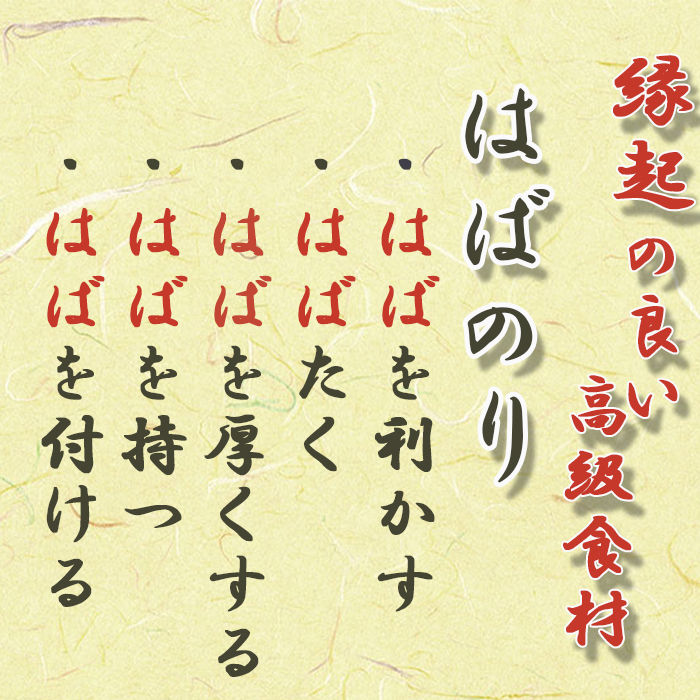 縁起の良い
高級食材
はばのり
・はばを利かす
・はばたく
・はばを厚くする
・はばを持つ
・はばを付ける